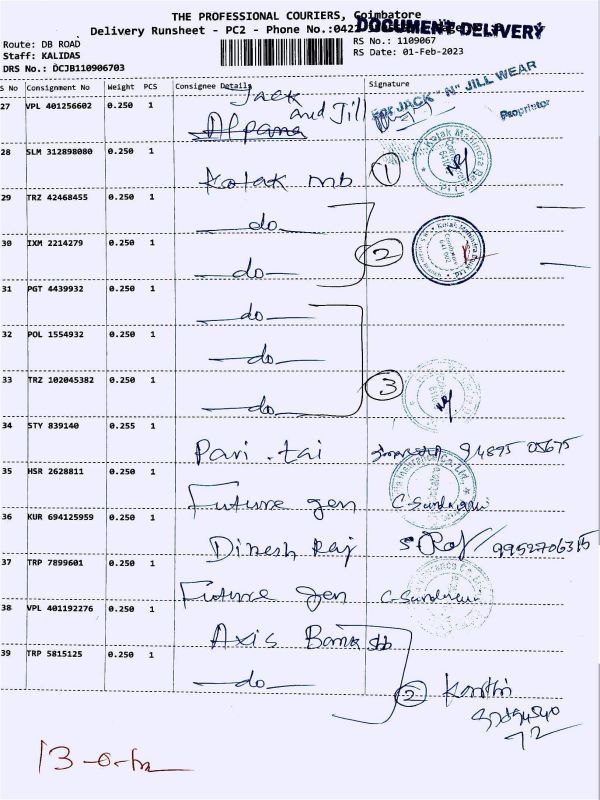 THE PROFESSIONAL COURIERS, Coimbatore
DOCUMENT DELIVERY
Delivery Runsheet - PC2 - Phone No.:0422
Route: DB ROAD
Staff: KALIDAS
DRS No.: DCJB110906703
RS No.: 1109067
RS Date: 01-Feb-2023
S No Consignment No Weight PCS Consignee Details Signature
27 VPL 401256602 0.250 1 Jack and Jill
For JACK "N" JILL WEAR
Proprietor
28 SLM 312898080 0.250 1 Kotak mb 1
29 TRZ 42468455 0.250 1 —do—
30 IXM 2214279 0.250 1 —do— 2
31 PGT 4439932 0.250 1 —do—
32 POL 1554932 0.250 1 —do—
33 TRZ 102045382 0.250 1 —do— 3
34 STY 839140 0.255 1 Pari .tai 94895 05675
35 HSR 2628811 0.250 1 Future gen C.Sundravi
36 KUR 694125959 0.250 1 Dinesh Raj S.Raj / 9952706315
37 TRP 7899601 0.250 1 Future gen
38 VPL 401192276 0.250 1 Axis Bank sbb
39 TRP 5815125 0.250 1 —do— 2
72